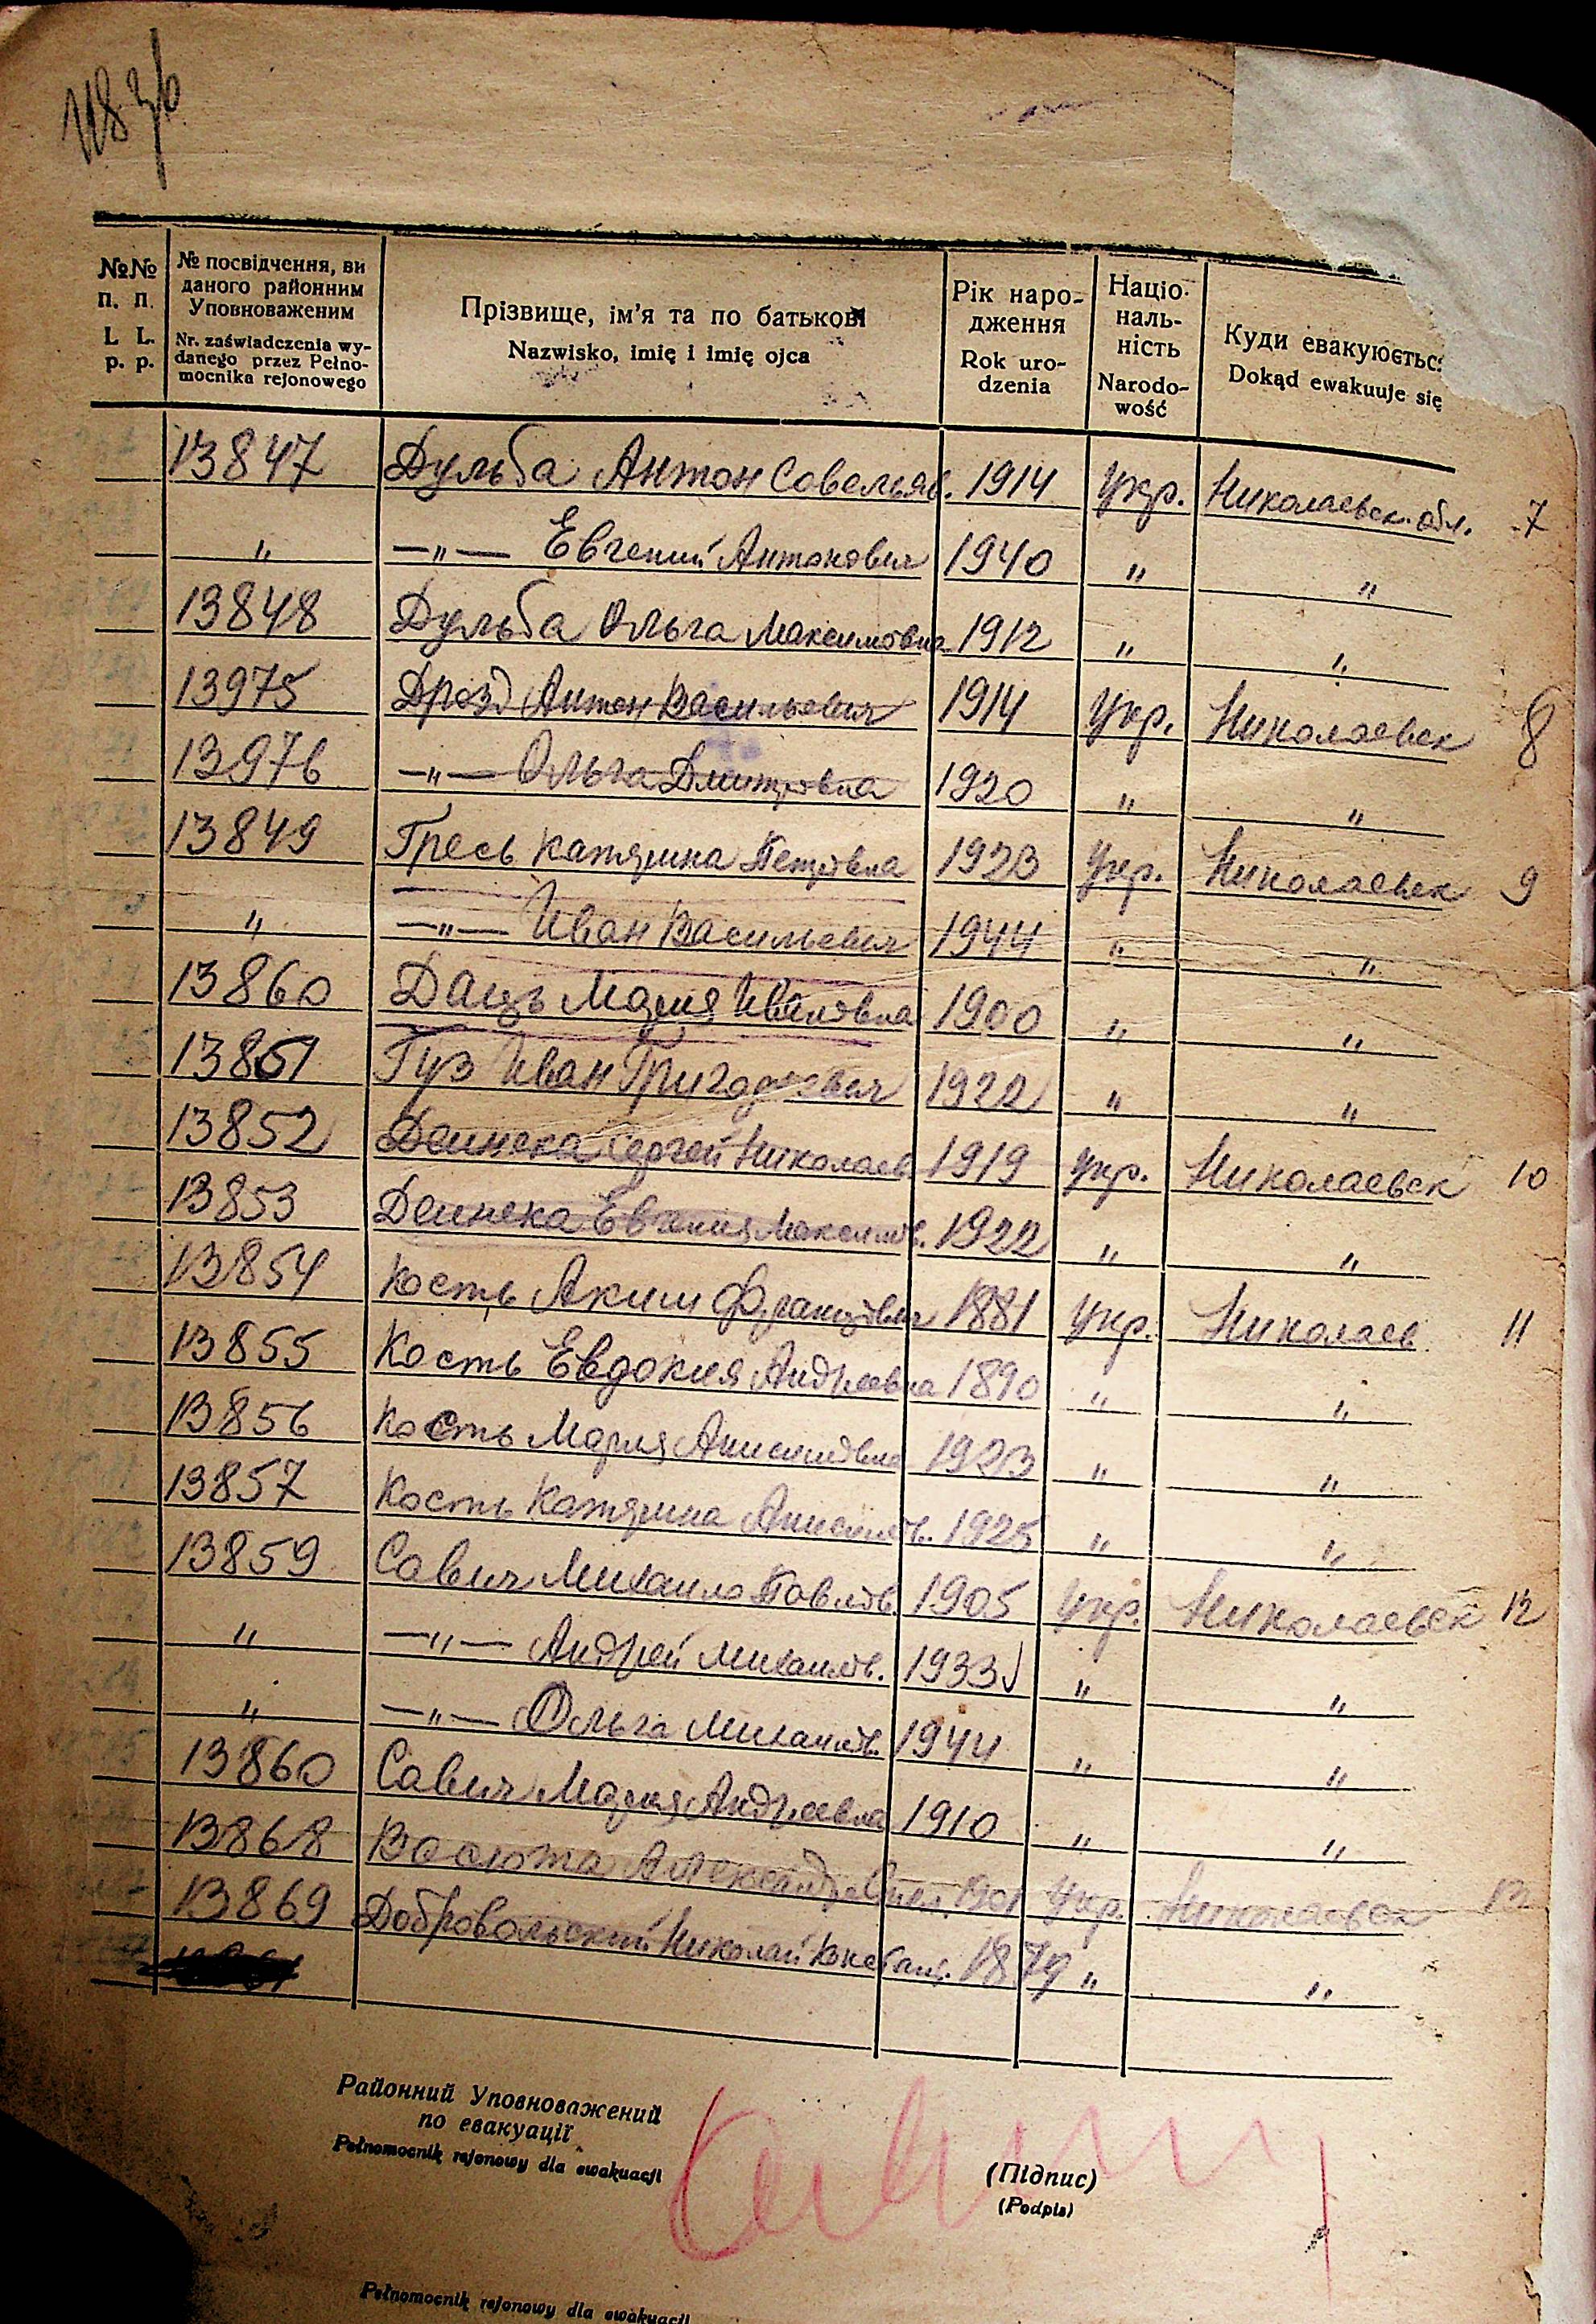 №№ п. п. L. L. p. p.
№ посвідчення, ви даного районним Уповноваженим
Nr. zaświadczenia wydanego przez Pełnomocnika rejonowego
Прізвище, ім'я та по батькові
Nazwisko, imię i imię ojca
Рік народження
Rok urodzenia
Національність
Narodowość
Куди евакуюєтьс
Dokąd ewakuuje się
13847 Дульба Антон Савельев. 1914 Укр. Николаевск. обл. 7
" —"— Евгений Антонович 1940 " "
13848 Дульба Ольга Максимовна 1912 " "
13975 Дрозд Антон Васильевич 1914 Укр. Николаевск 8
13976 —"— Ольга Дмитровна 1920 " "
13849 Гресь Катярина Петровна 1923 Укр. Николаевск 9
" —"— Иван Васильевич 1944 " "
13860 Даць Мария Ивановна 1900 " "
13851 Гуз Иван Григорович 1922 " "
13852 Деинека Сергей Николаев 1919 укр. Николаевск 10
13853 Деинека Евгения Максимов. 1922 " "
13854 Кость Аким Францович 1881 Укр. Николаев 11
13855 Кость Евдокия Андреевна 1890 " "
13856 Кость Мария 1923 " "
13857 Кость Катярина 1925 " "
13859 Савич Михаило Павлов. 1905 Укр. Николаевск 12
" —"— Андрей Михаилов. 1933 " "
" —"— Ольга Михаилов. 1944 " "
13860 Савич Мария Андреевна 1910 " "
13868 Васюта Александра 1901 Укр. Николаевск 13
13869 Добровольский Николай 1879 " "
Районний Уповноважений
по евакуації
Pełnomocnik rejonowy dla ewakuacji
(Підпис)
(Podpis)
Pełnomocnik rejonowy dla ewakuacji